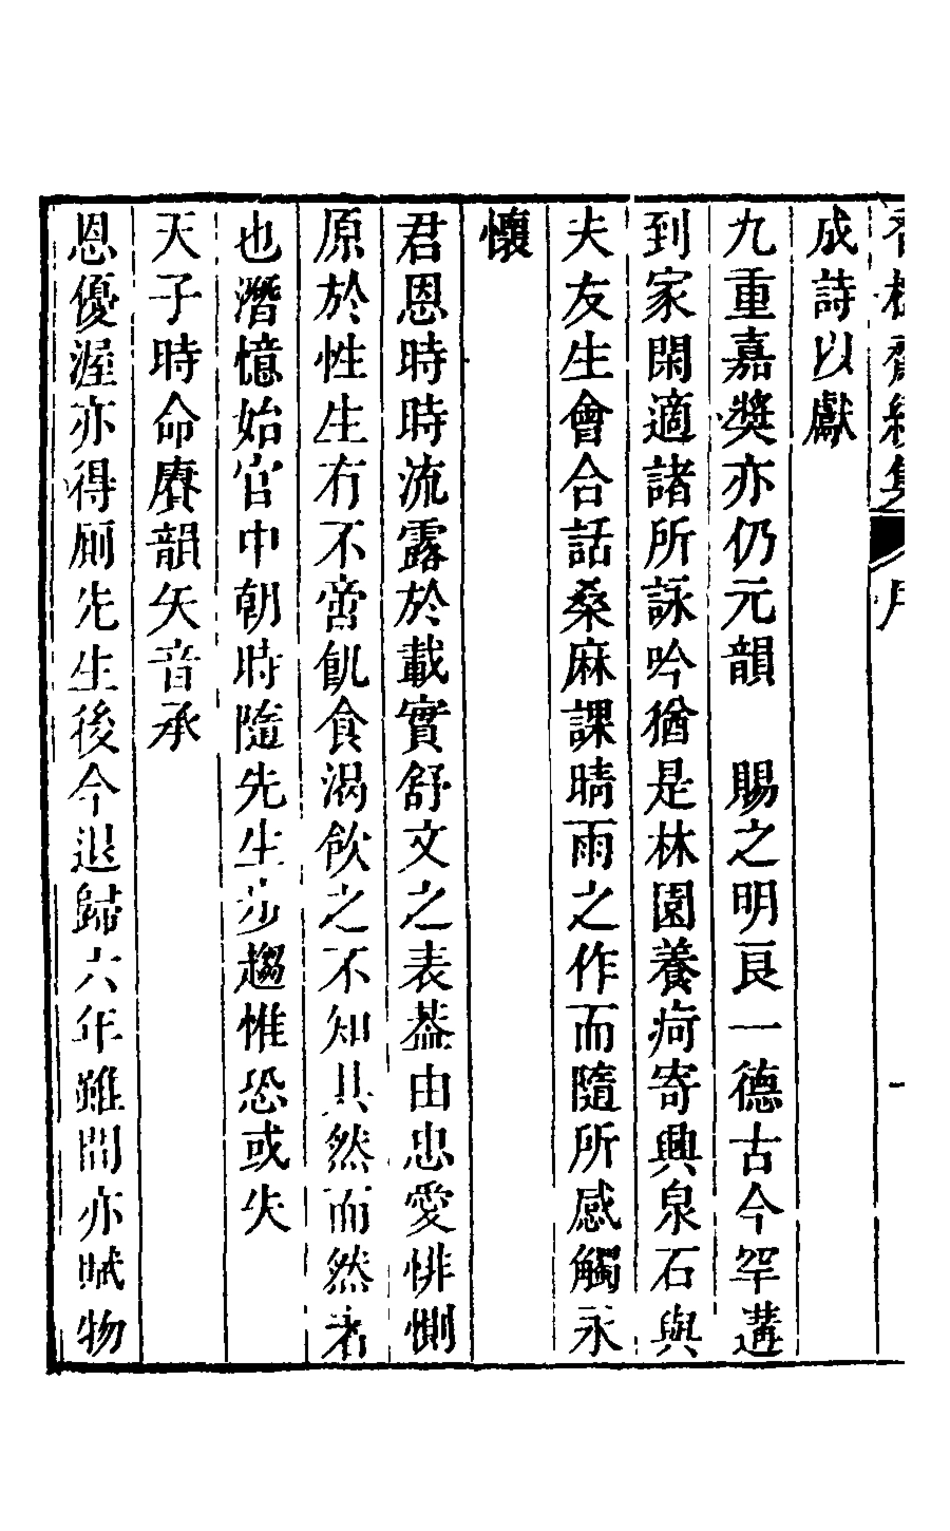 香樹齋續集 序 一
成詩以獻
九重嘉奬亦仍元韻 賜之明良一德古今罕遘
到家閑適諸所詠吟猶是林園養疴寄興泉石與
夫友生會合話桑麻課晴雨之作而隨所感觸永
懷
君恩時時流露於載賡舒文之表葢由忠愛悱惻
原於性生有不啻飢食渴飲之不知其然而然者
也潛憶始官中朝時隨先生步趨惟恐或失
天子時命賡韻矢音承
恩優渥亦得厠先生後今退歸六年雖間亦賦物